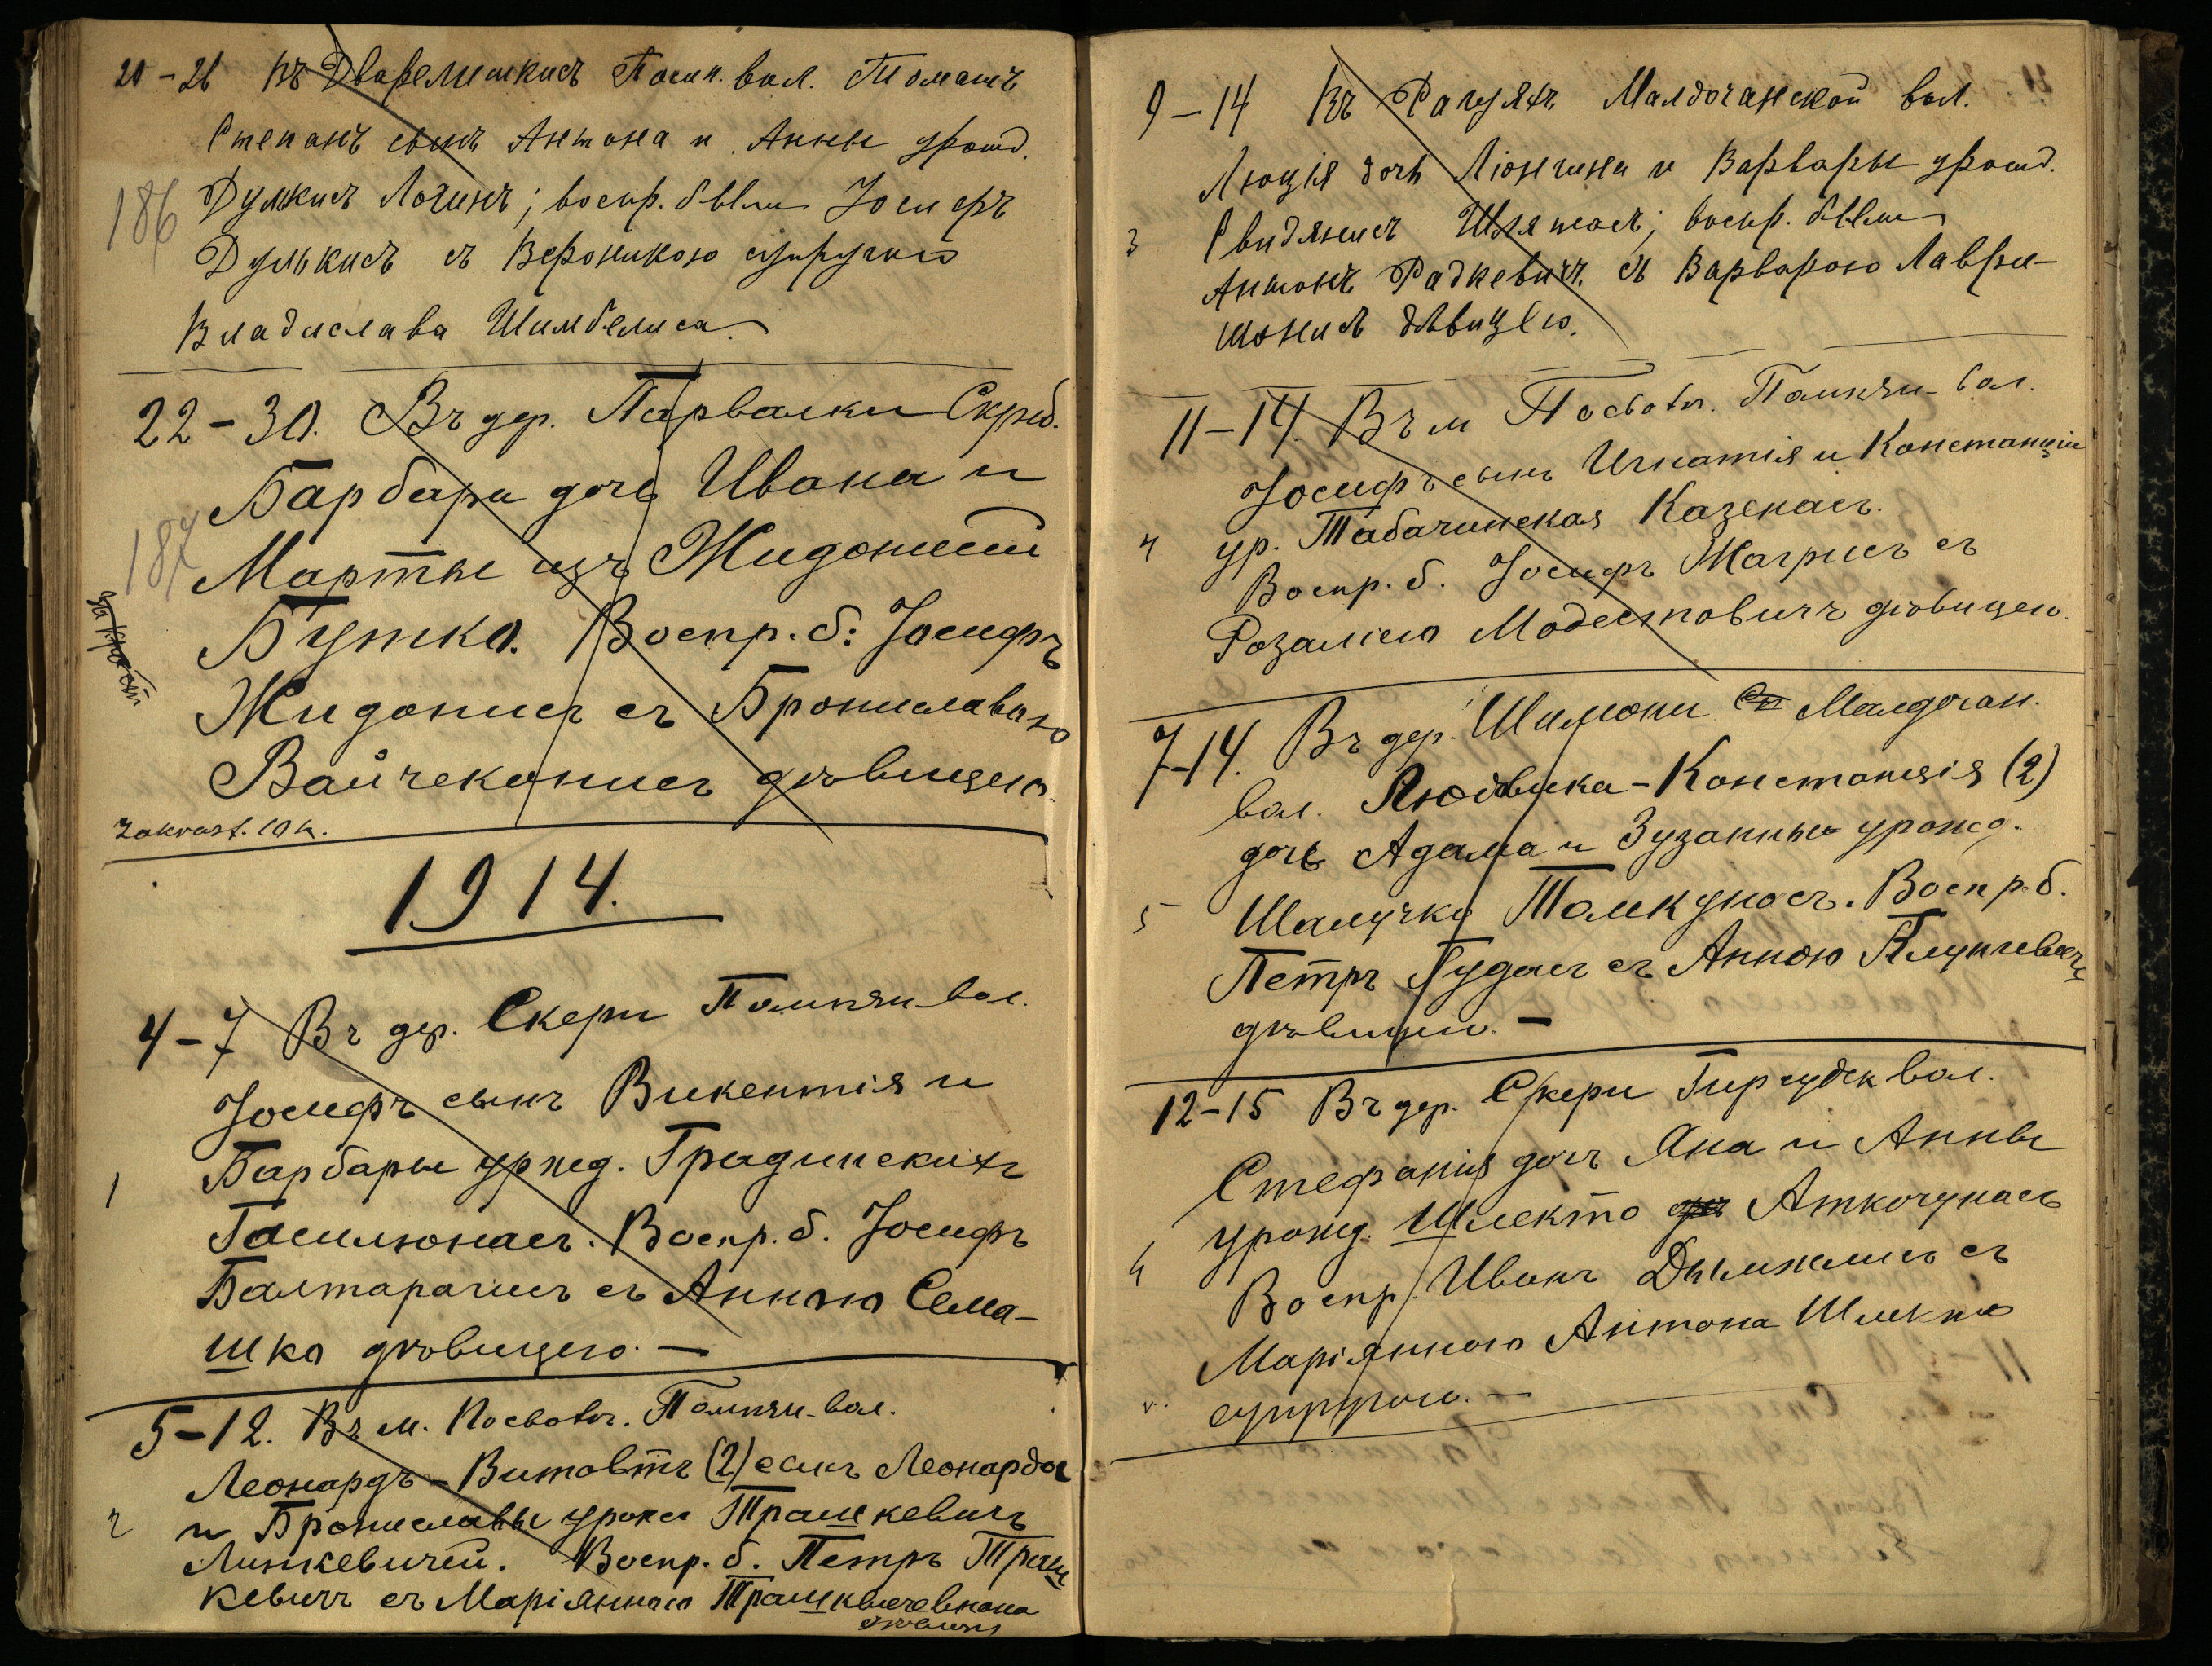 20-26 Въ Дварелишкисъ Помп. вол. Томашъ
Степанъ сынъ Антона и Анны урожд.
186
Дулькисъ Логинъ; воспр. были Іосифъ
Дулькисъ съ Вероникою супругою
Владислава Шимбелиса.
22-30. Въ дер. Парвалки Скреб.
Барбара дочь Ивана и
187
Марты изъ Жидонисы
Бутко. Воспр. б: Іосифъ
Жидонисъ съ Брониславою
Вайчеконисъ дѣвицею.
1914.
4-7 Въ дер. Скери Помпян. вол.
Іосифъ сынъ Викентія и
Барбары урожд. Градинскихъ
1
Гасилюнасъ. Воспр. б. Іосифъ
Балтарагисъ съ Анною Сема-
шко дѣвицею. —
5-12. Въ м. Посволь. Помпян. вол.
Леонардъ-Витовтъ (2) сынъ Леонарда
2
и Брониславы урожд Трашкевичъ
Линкевичей. Воспр. б. Петръ Траш
кевичъ съ Маріянною
дѣвицею
9-14 Въ Рагуяхъ Малдочанской вол.
Люція дочь Лонгина и Варвары урожд.
3
Свидянисъ Шляпасъ; воспр. были
Антонъ Радкевичъ съ Варварою Лаври-
шонисъ дѣвицею.
11-14. Въ м Посволь. Помпян. вол.
Іосифъ сынъ Игнатія и Констанціи
4
ур. Табачинская Казенасъ.
Воспр. б. Іосифъ Жагрисъ съ
Розаліею Модестовичъ дѣвицею.
7-14. Въ дер. Шимони Малдочан.
вол. Людвика-Констанція (2)
дочь Адама и Зузанны урожд.
5
Шалучко Тамкунасъ. Воспр. б.
Петръ Гудасъ съ Анною
дѣвицею. —
12-15 Въ дер. Скери Гиргудск вол.
Стефанія дочь Яна и Анны
урожд. Шлекто Аткочунасъ
Воспр. Иванъ съ
Маріянною Антона Шлекто
супругою. —